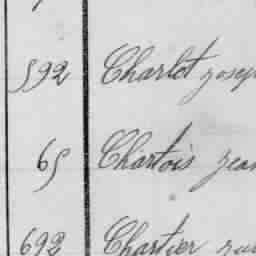 592 Charlot Josep
65 Chartois Jean
692 Chartier